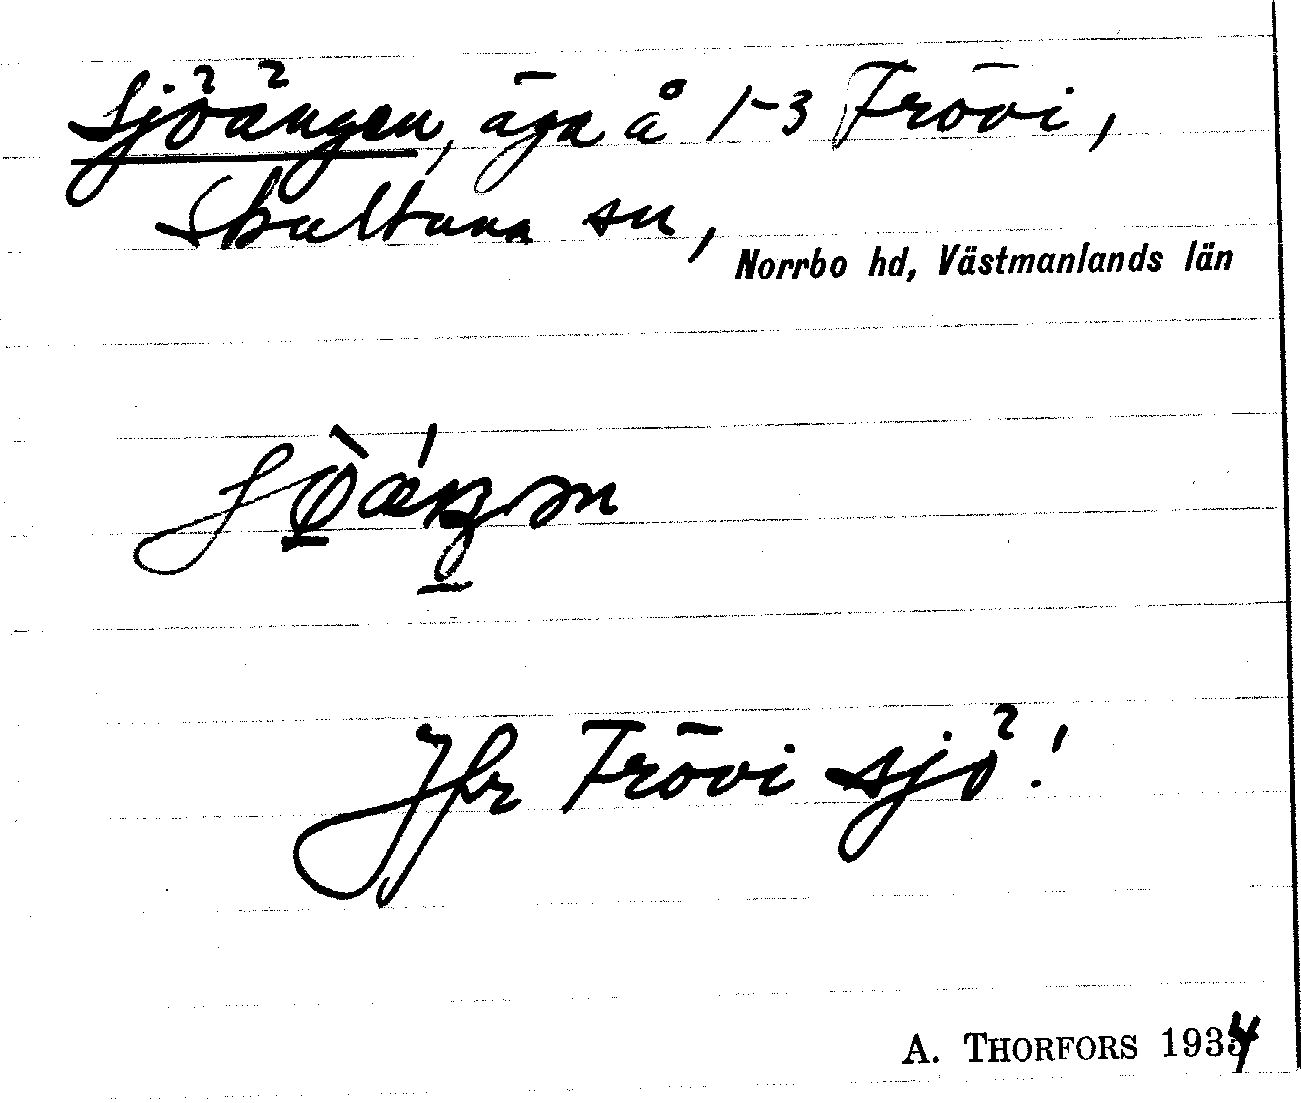 Sjöängen, äga å 1-3 Frövi,
Skultuna sn,
Norrbo hd, Västmanlands län
Jfr Frövi sjö!
A. THORFORS 1934